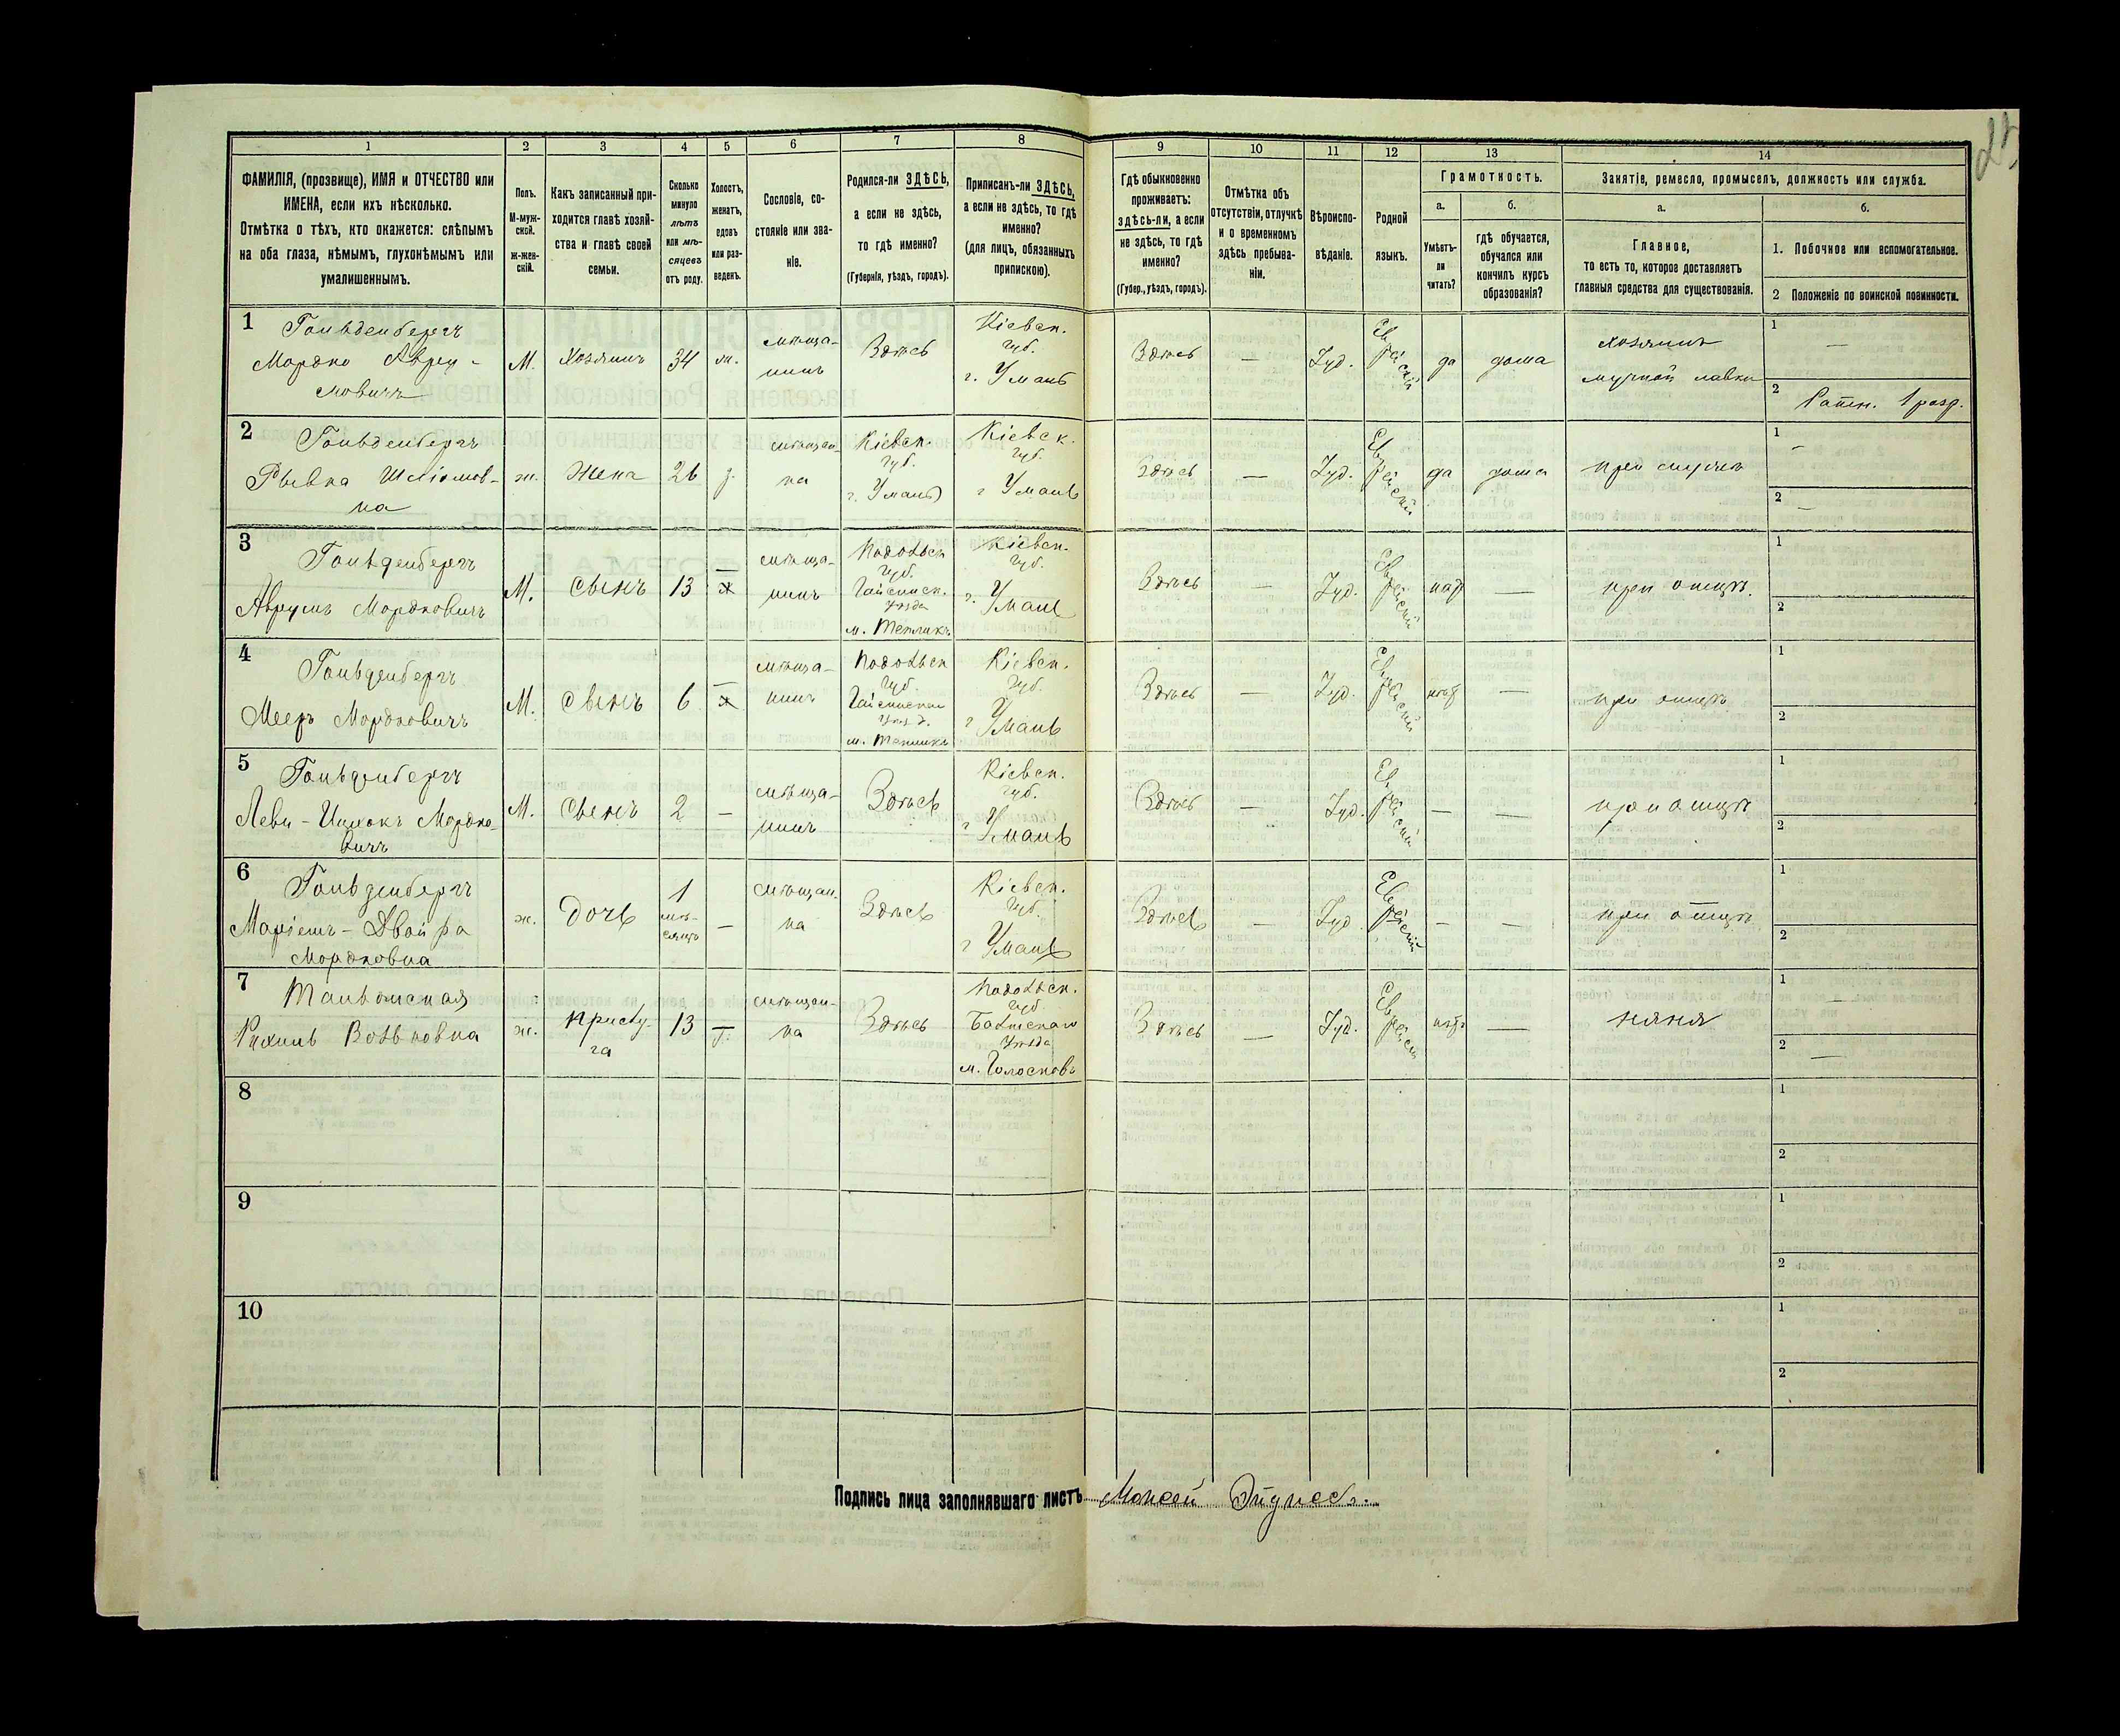 1
2
3
4
5
6
7
8
ФАМИЛІЯ, (прозвище), ИМЯ и ОТЧЕСТВО или
ИМЕНА, если ихъ нѣсколько.
Отмѣтка о тѣхъ, кто окажется: слѣпымъ
на оба глаза, нѣмымъ, глухонѣмымъ или
умалишеннымъ.
Полъ.
М-муж-
ской.
ж-жен-
скій.
Какъ записанный при-
ходится главѣ хозяй-
ства и главѣ своей
семьи.
Сколько
минуло
лѣтъ
или мѣ-
сяцевъ
отъ роду.
Холостъ,
женатъ,
вдовъ
или раз-
веденъ.
Сословіе, со-
стояніе или зва-
ніе.
Родился-ли ЗДѢСЬ,
а если не здѣсь,
то гдѣ именно?
(Губернія, уѣздъ, городъ).
Приписанъ-ли ЗДѢСЬ,
а если не здѣсь, то гдѣ
именно?
(для лицъ, обязанныхъ
припискою).
9
10
11
12
13
14
Гдѣ обыкновенно
проживаетъ:
здѣсь-ли, а если
не здѣсь, то гдѣ
именно?
(Губер., уѣздъ, городъ).
Отмѣтка объ
отсутствіи, отлучкѣ
и о временномъ
здѣсь пребыва-
ніи.
Вѣроиспо-
вѣданіе.
Родной
языкъ.
Грамотность.
а.
б.
Умѣетъ-
ли
читать?
гдѣ обучается,
обучался или
кончилъ курсъ
образованія?
Занятіе, ремесло, промыселъ, должность или служба.
а.
б.
Главное,
то есть то, которое доставляетъ
главныя средства для существованія.
1. Побочное или вспомогательное.
2 Положеніе по воинской повинности.
1
Гольденбергъ
Мордко Авру-
мовичъ
М.
Хозяинъ
34
ж.
мѣща-
нинъ
Здѣсь
Кіевск.
губ.
г. Умань
Здѣсь
—
Іуд.
Еврейскій
да
дома
хозяинъ
мучной лавки
1
—
2
Ратн. 1 разр.
2
Гольденбергъ
Рывка Шліомов-
на
ж.
Жена
26
з.
мѣщан-
ка
Кіевск.
губ.
г. Умань
Кіевск.
губ.
г Умань
Здѣсь
—
Іуд.
Еврейскій
да
дома
при мужѣ
1
—
2
—
3
Гольденбергъ
Аврумъ Мордковичъ
М.
сынъ
13
—
х
мѣща-
нинъ
Подольск
губ.
Гайсинск.
уѣзда
м. Тепликъ
Кіевск.
губ.
г. Умань
Здѣсь
—
Іуд.
Еврейскій
нѣтъ
—
при отцѣ.
1
2
4
Гольденбергъ
Мееръ Мордковичъ
М.
сынъ
6
—
х
мѣща-
нинъ
Подольск
губ.
м. Тепликъ
Кіевск.
губ.
г Умань
Здѣсь
—
Іуд.
Еврейскій
нѣтъ
—
при отцѣ
1
2
5
Гольденбергъ
Леви-Ицхокъ Мордко-
вичъ
М.
Сынъ
2
—
мѣща-
нинъ
Здѣсь
Кіевск.
губ.
г Умань
Здѣсь
—
Іуд.
Еврейскій
—
—
при отцѣ
1
2
6
Гольденбергъ
Маріемъ-Двойра
Мордковна
ж.
дочь
1
мѣ-
сяцъ
—
мѣщан-
ка
Здѣсь
Кіевск.
губ.
г Умань
Здѣсь
—
Іуд
Еврейскій
—
—
при отцѣ
1
2
7
Рухель Вольковна
ж.
прислу-
га
13
—
мѣщан-
ка
Здѣсь
Подольск.
губ
Балтскаго
уѣзда
м. Голосковъ
Здѣсь
—
Іуд.
нѣтъ
—
няня
1
—
2
—
8
1
2
9
1
2
10
1
2
Подпись лица заполнявшаго листъ Моисей